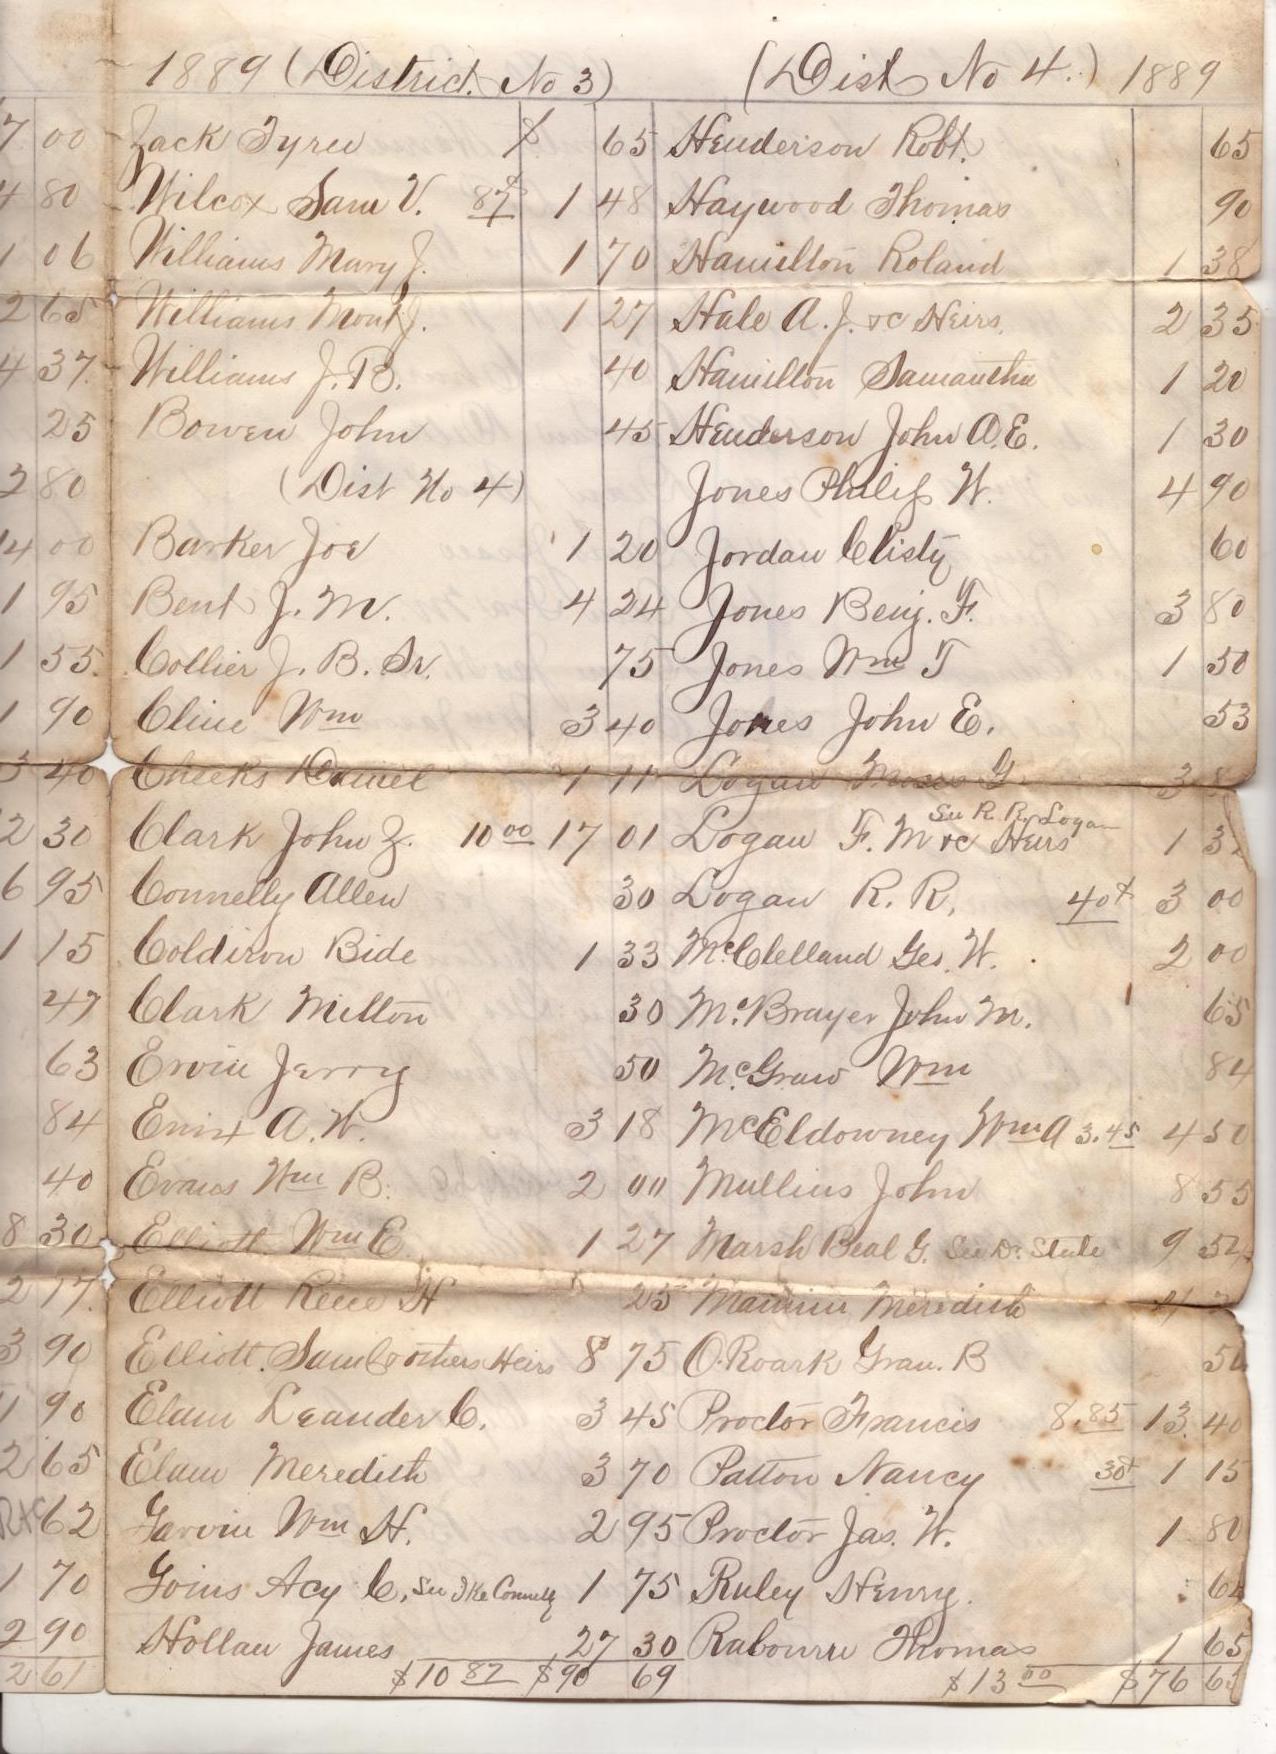 1889 (District. No 3)
7 00 Zack Tyree $ 65
4 80 Wilcox Sam V. 87¢ 1 48
1 06 Williams Mary J. 1 70
2 65 Williams Mont J. 1 27
4 37. Williams J. B. 40
25 Bowen John 45
2 80 (Dist No 4)
14 00 Barker Joe 1 20
1 95 Bent J. M. 4 24
1 55. Collier J. B. Sr. 75
1 90 Cline Wm 3 40
3 40 Cheeks Daniel 1 11
2 30 Clark John Z. 10 00 17 01
6 95 Connelly Allen 30
1 15 Coldiron Bide 1 33
47 Clark Milton 30
63 Ervin Jerry 50
84 Enix A. W. 3 18
40 Evans Wm B. 2 00
8 30 Elliott Wm E. 1 27
2 17. Elliott Reece H 25
3 90 Elliott. Sam & others Heirs 8 75
1 90 Elam Leander C. 3 45
2 65 Elam Meredith 3 70
62 Garvin Wm H. 2 95
1 70 Goins Acy C. See Ike Connelly 1 75
2 90 Hollan James 27 30
2 61 $10 87 $90 69
(Dist No 4.) 1889
Henderson Robt. 65
Haywood Thomas 90
Hamilton Roland 1 38
Hale A. J. &c Heirs. 2 35
Hamilton Samantha 1 20
Henderson John A. E. 1 30
Jones Philip W. 4 90
Jordan Clisty 60
Jones Benj. F. 3 80
Jones Wm T 1 50
Jones John E. 53
Logan Moses G. 3
See R. R. Logan
Logan F. M &c Heirs 1
Logan R. R. 40¢ 3 00
McClelland Geo. W. 2 00
McBrayer John M. 65
McGraw Wm 84
McEldowney Wm A 3.45 4 50
Mullins John 8 55
Marsh Beal G. See De. State 9
Mannin Meredith
O.Roark Gran. B
Proctor Francis 8.85 13. 40
Patton Nancy 30¢ 1 15
Proctor Jas. W. 1 80
Ruley Henry.
Rabourn Thomas 1 65
$13 00 $76